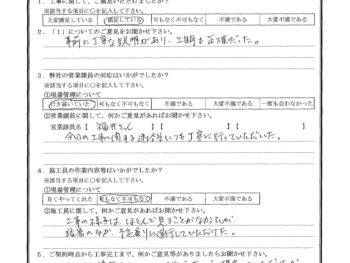 1. 工事に関して、ご満足いただけましたか?
※該当する項目に○を記入して下さい。
大変満足している 満足している 可もなく不可もなく 不満である 大変不満である
2. 「1」についてのご意見をお聞かせ下さい。
事前に丁寧な説明があり、工期も正確だった。
3. 弊社の営業課員の対応はいかがでしたか?
※該当する項目に○を記入して下さい。
①現場管理について
行き届いていた 可もなく不可もなく 不満である 大変不満である 一度も会わなかった
②営業課員に関して、何かご意見があればお聞かせ下さい。
営業課員名【 福井さん 】【 】【 】
今回の工事に関する連絡等いつも丁寧に行っていただいた。
4. 施工員の作業内容等はいかがでしたか?
※該当する項目に○を記入して下さい。
①現場管理について
良くやってくれた 可もなく不可もなく 不満である 大変不満である
②施工員に関して、何かご意見があればお聞かせ下さい。
工事の様子は、ほとんど見ることがなかったが、
猛暑のなか、予定通りに進行していただけた。
5. ご契約時点から工事完了まで、何かご意見等がありましたらお聞かせ下さい。